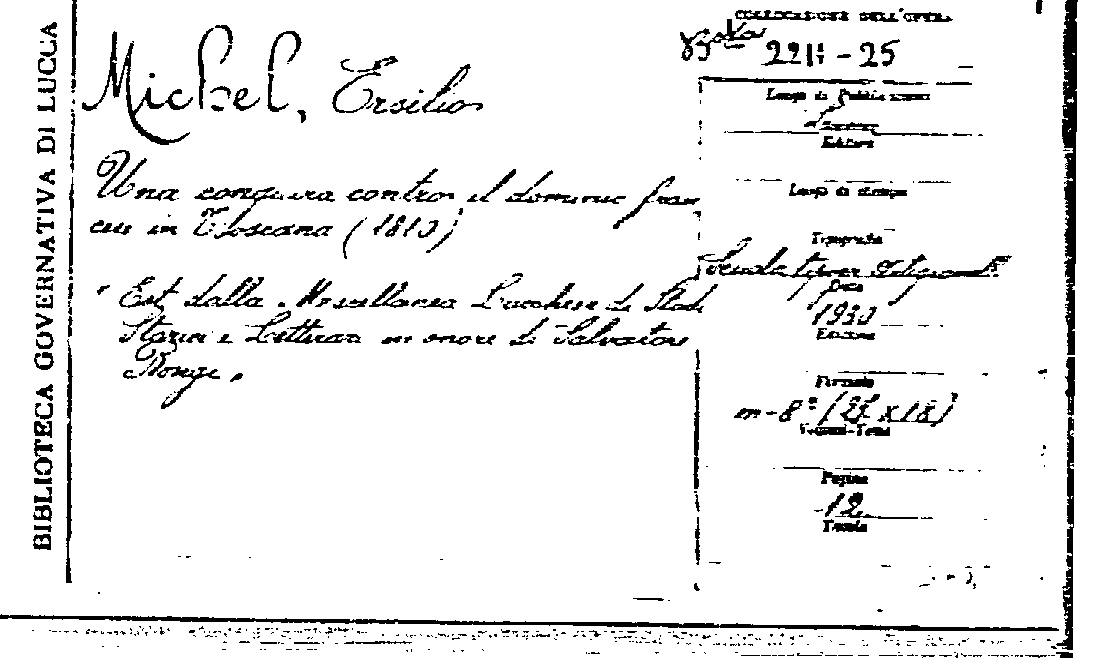 BIBLIOTECA GOVERNATIVA DI LUCCA
Michel, Ersilio
Una congiura contro il dominio fran
cese in Toscana (1810)
Est. dalla Miscellanea Lucchese di Studi
Storici e Letterari in onore di Salvatore
Bongi.
COLLOCAZIONE DELL'OPERA
Busta 221 - 25
Luogo di Pubblicazione
Editore
Luogo di stampa
Tipografia
Scuola tipogr. Artigianelli
Data
1930
Edizione
Formato
in-8° ( x 18)
Volumi-Tomi
Pagine
12
Tavole